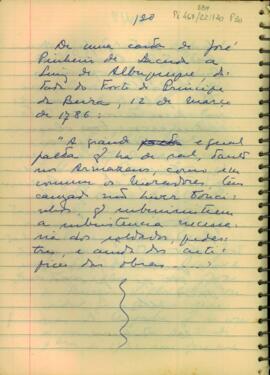 120
BBA
Pi 468/22.120 P20
De uma carta de José
Pinheiro de Lacerda a
Luiz de Albuquerque, da-
tada do Forte do Principe
da Beira, 12 de março
de 1786:
"A grande e igual
q̃ ha de sal, tanto
nos Armazens, como em
commum os Moradores, tem
cauzado não haver Touci-
nhos, q̃ subministrem
a subsistencia necessa-
ria dos soldados, pedes-
tres, e ainda dos arti-
fices das obras....: